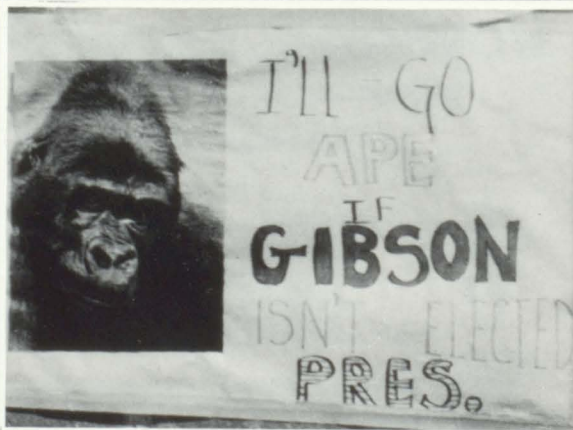 I'll GO
APE
IF
GIBSON
ISN'T ELECTED
PRES.